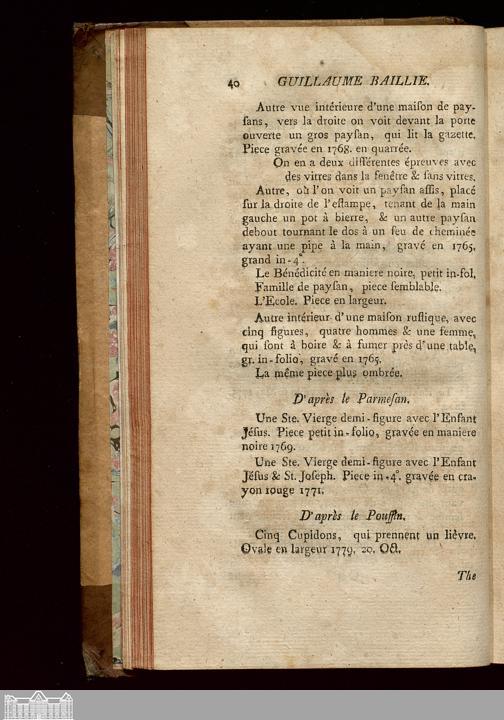 40 GUILLAUME BAILLIE.
Autre vue intérieure d'une maiſon de pay-
ſans, vers la droite on voit devant la porte
ouverte un gros payſan, qui lit la gazette.
Piece gravée en 1768. en quarrée.
On en a deux différentes épreuves avec
des vitres dans la fenêtre & ſans vitres.
Autre, où l'on voit un payſan aſſis, placé
ſur la droite de l'eſtampe, tenant de la main
gauche un pot à bierre, & un autre payſan
debout tournant le dos à un feu de cheminée
ayant une pipe à la main, gravé en 1765.
grand in-4°.
Le Bénédicité en maniere noire, petit in-fol.
Famille de payſan, piece ſemblable.
L'Ecole. Piece en largeur.
Autre intérieur d'une maiſon ruſtique, avec
cinq figures, quatre hommes & une femme,
qui ſont à boire & à fumer près d'une table,
gr. in-folio, gravé en 1765.
La même piece plus ombrée.
D'après le Parmeſan.
Une Ste. Vierge demi-figure avec l'Enfant
Jéſus. Piece petit in-folio, gravée en maniere
noire 1769.
Une Ste. Vierge demi-figure avec l'Enfant
Jéſus & St. Joſeph. Piece in-4°. gravée en cra-
yon rouge 1771.
D'après le Pouſſin.
Cinq Cupidons, qui prennent un lièvre.
Ovale en largeur 1779. 20. Oct.
The